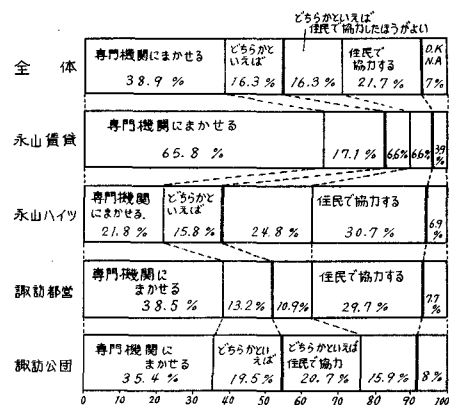 どちらかといえば
住民で協力したほうがよい
全体
専門機関にまかせる
38.9 %
どちらかと
いえば
16.3 %
16.3 %
住民で
協力する
21.7 %
D.K
N.A
7%
永山賃貸
専門機関にまかせる
65.8 %
17.1 %
6.6%
6.6%
3.9
%
永山ハイツ
専門機関
にまかせる.
21.8 %
どちらかと
いえば
15.8 %
24.8 %
住民で協力する
30.7 %
6.9
%
諏訪都営
専門機関に
まかせる
38.5 %
13.2%
10.9%
住民で協力する
29.7 %
7.7
%
諏訪公団
専門機関に
まかせる
35.4 %
どちらかとい
えば
19.5%
どちらかといえば
住民で協力
20.7 %
15.9%
8%
0 10 20 30 40 50 60 70 80 90 100